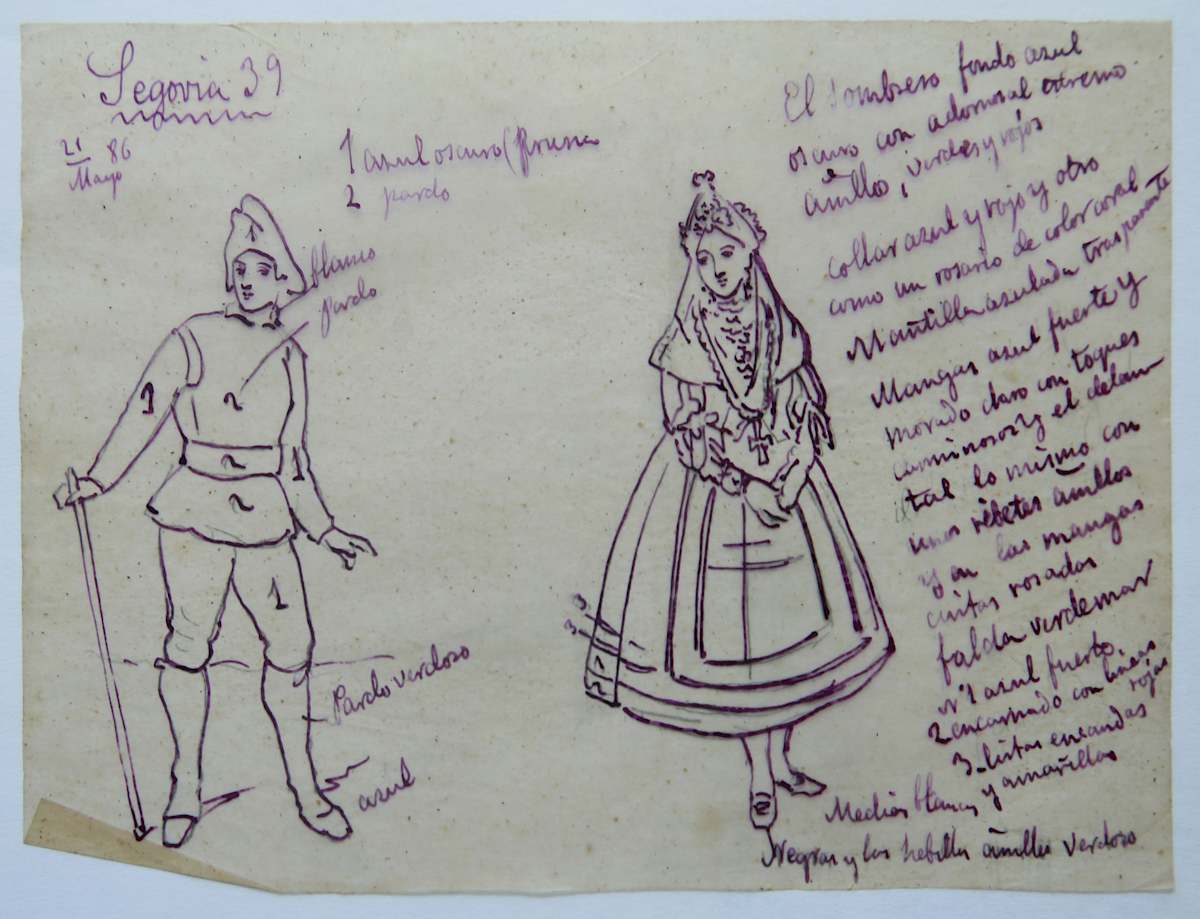 Segovia 39
21
Mayo 86
1 azul oscuro (Prusia
2 pardo
1
blanco
pardo
1
2
2
1
2
1
Pardo verdoso
azul
3
3
1
2
El Sombrero fondo azul
oscuro con adornos al extremo
amllo, verdes y rojos
collar azul y rojo y otro
como un rosario de color coral
Mantilla azulada trasparente
Mangas azul fuerte y
morado claro con toques
luminosos y el delan
tal lo mismo con
unos ribetes amllos
y en las mangas
cintas rosadas
falda verdemar
Nº1 azul fuerte
2 encarnado con lineas
rojas
3 listas encarndas
y amarillas
Medias blancas
Negras y las hebillas amlles verdoso